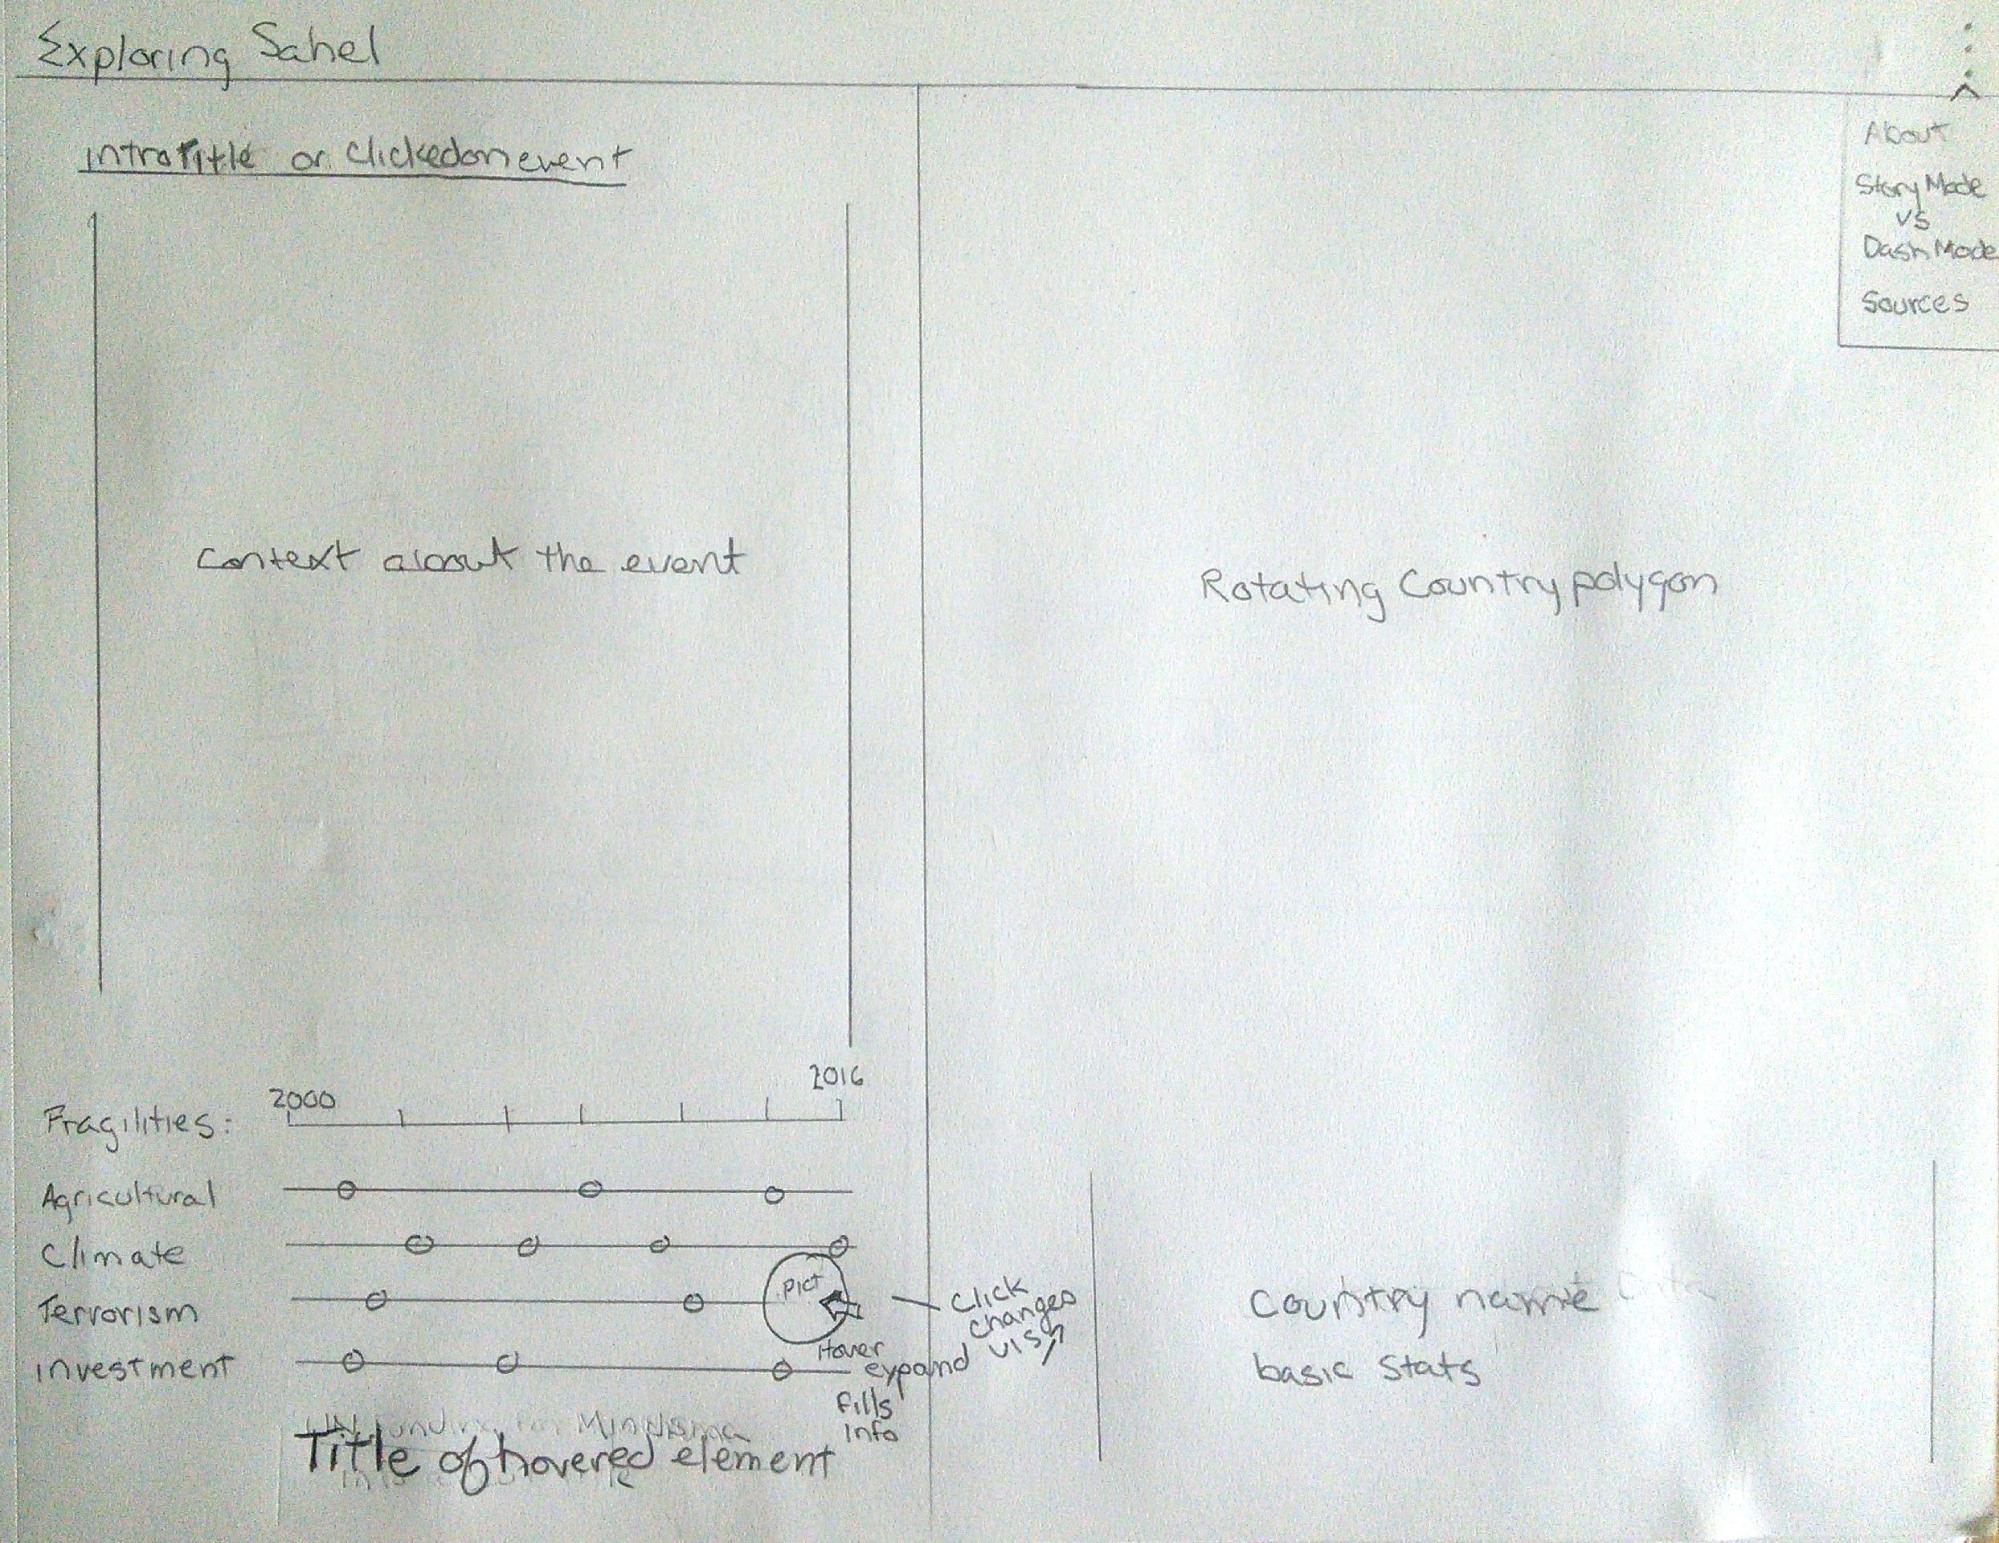 Exploring Sahel
About
Story Mode
vs
Dash Mode
Sources
Intro Title or Clickedon event
Context about the event
Rotating Country polygon
2000
2016
Fragilities:
Agricultural
Climate
Terrorism
investment
pict
Hover
expand
fills
info
Click
changes
vis
Title of hovered element
Country name
basic stats